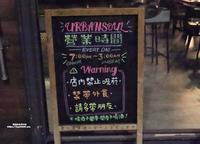 URBANSOUL
營業時間
EVERY DAY
7:00pm~3:00am
Warning
店內禁止吸菸。
禁帶外食。
請多帶朋友。